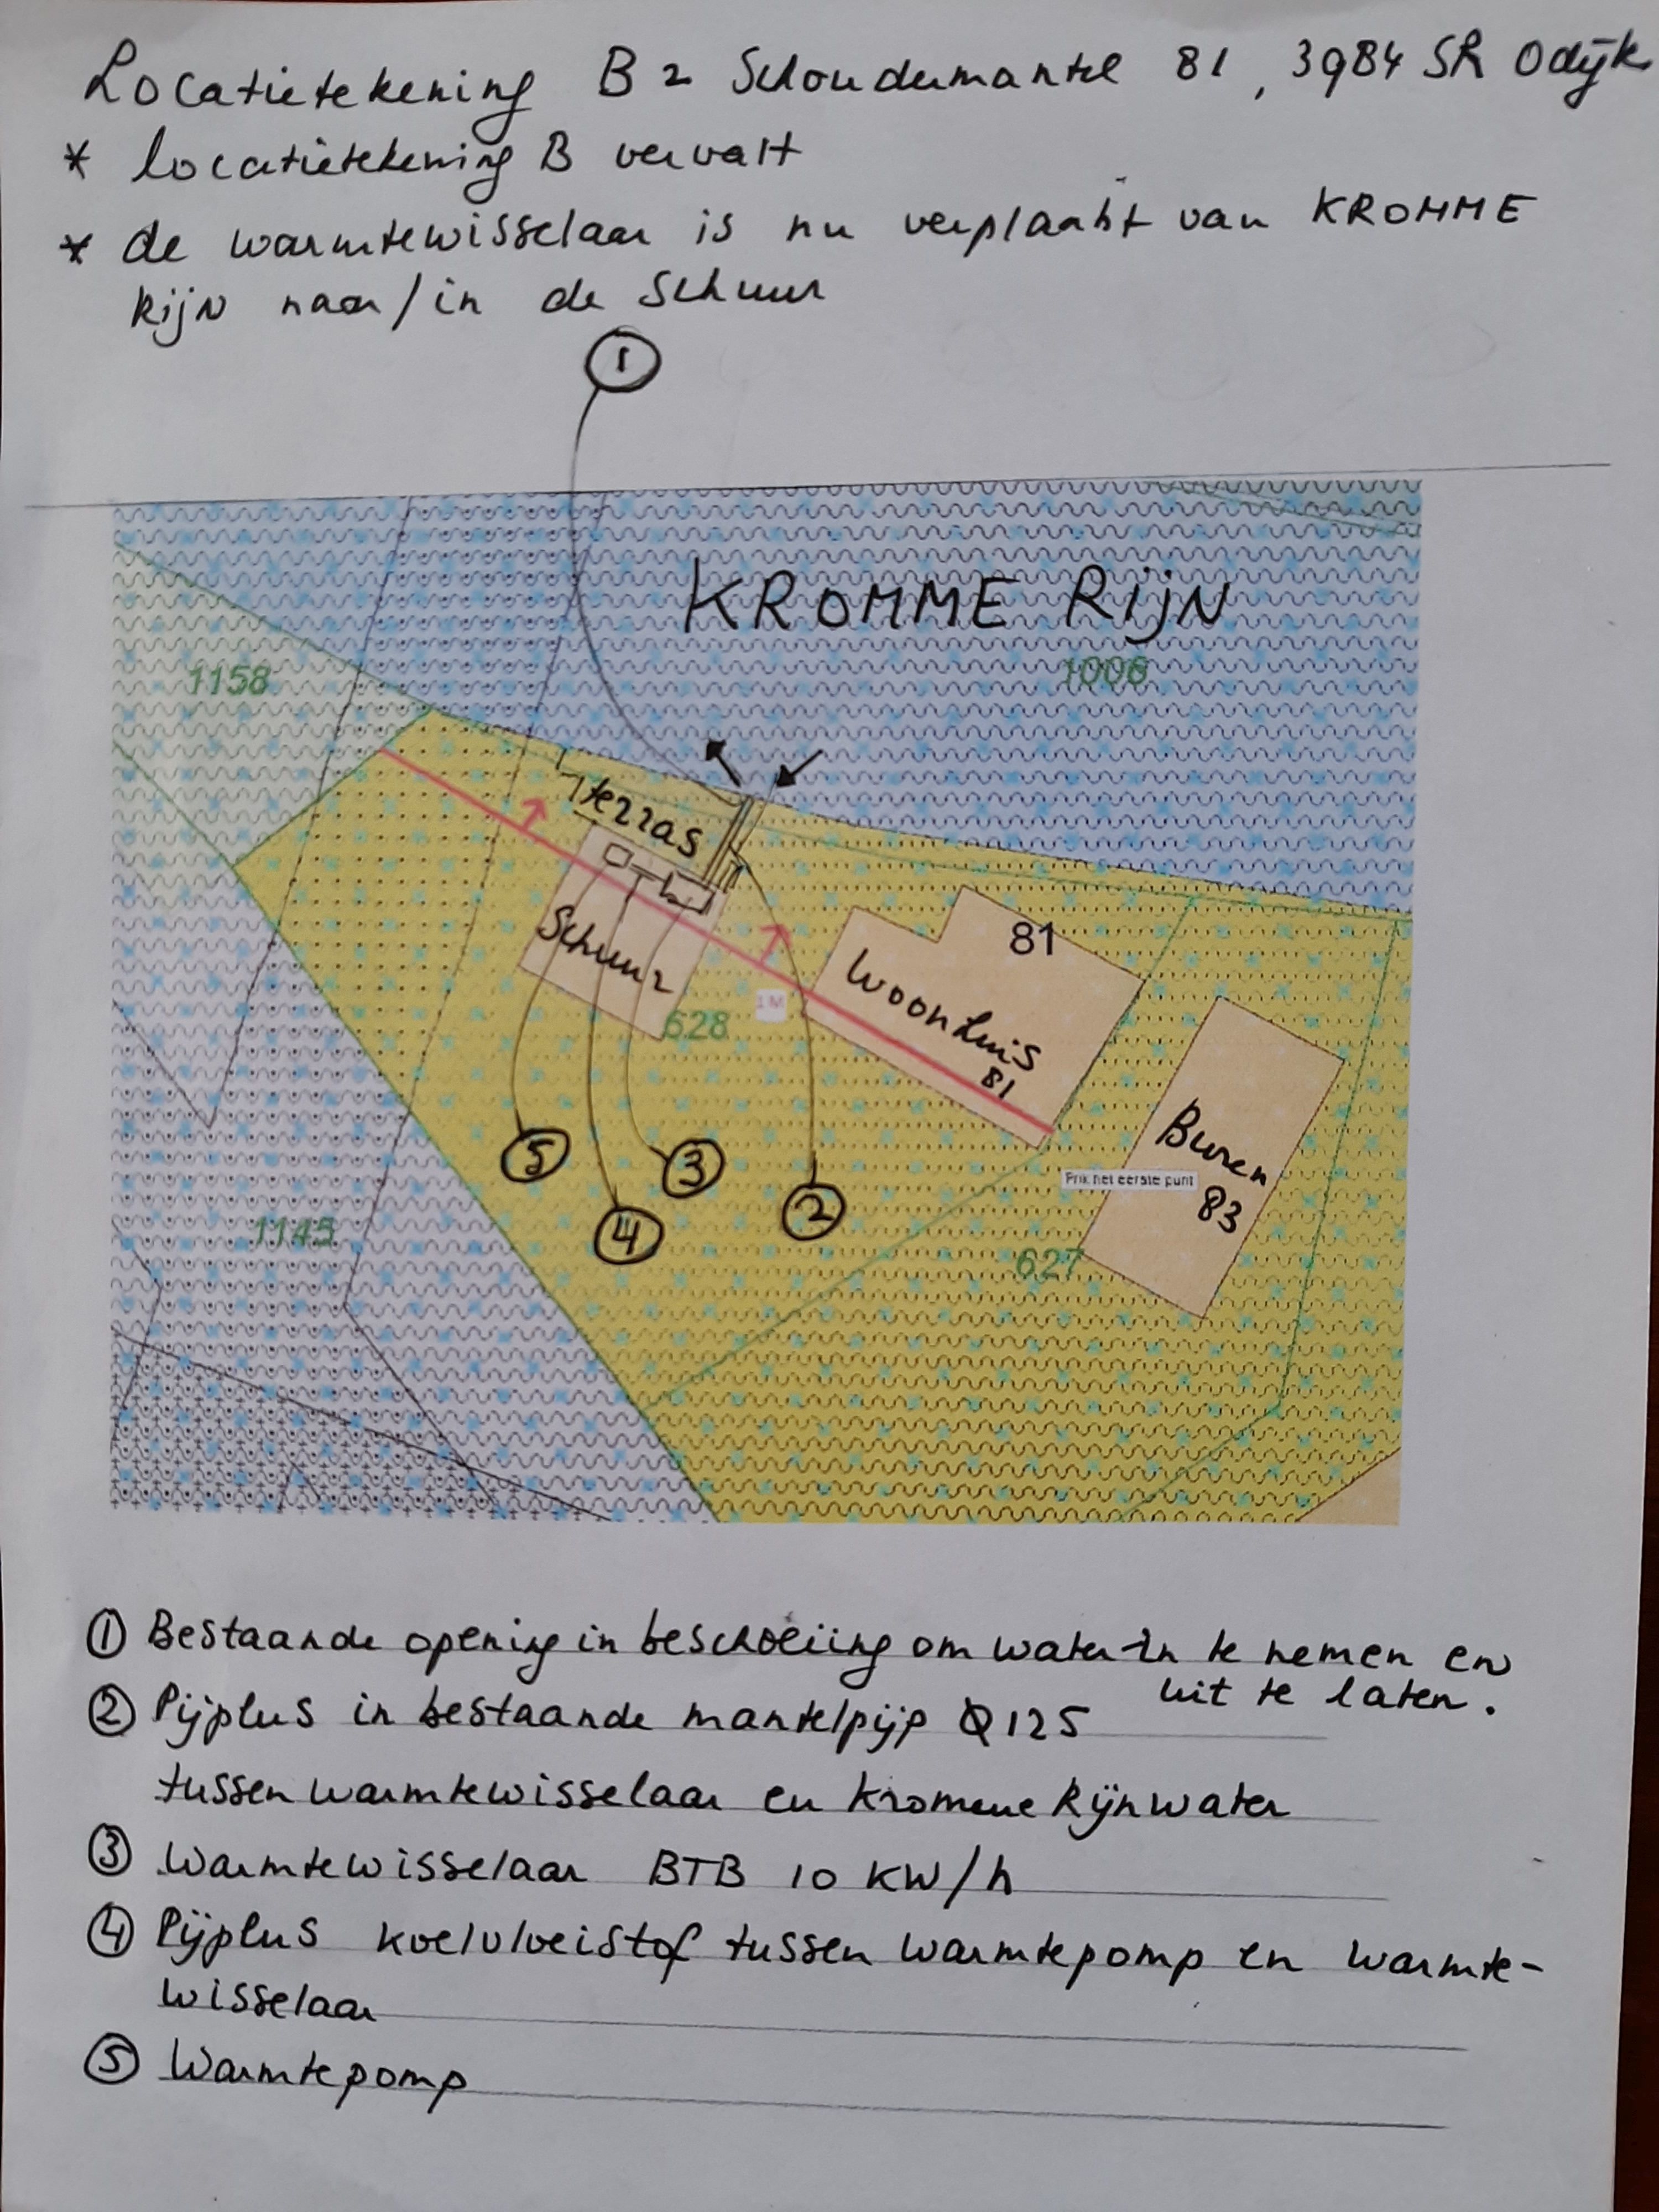 Locatietekening B2 Schoudermantel 81, 3984 SR Odijk
* locatietekening B vervalt
* de warmtewisselaar is nu verplaatst van KROMME
Rijn naar/in de Schuur
1
KROMME RijN
1158
1006
terras
Schuur
81
Woonhuis
81
1 M
628
Buren
83
Prik het eerste punt
5
3
4
2
1145
627
① Bestaande opening in beschoeiing om water in te nemen en
uit te laten.
② Pijplus in bestaande mantelpijp Ø125
tussen warmtewisselaar en Kromme Rijnwater
③ Warmtewisselaar BTB 10 KW/h
④ Pijplus koelvloeistof tussen warmtepomp en warmte-
wisselaar
⑤ Warmtepomp